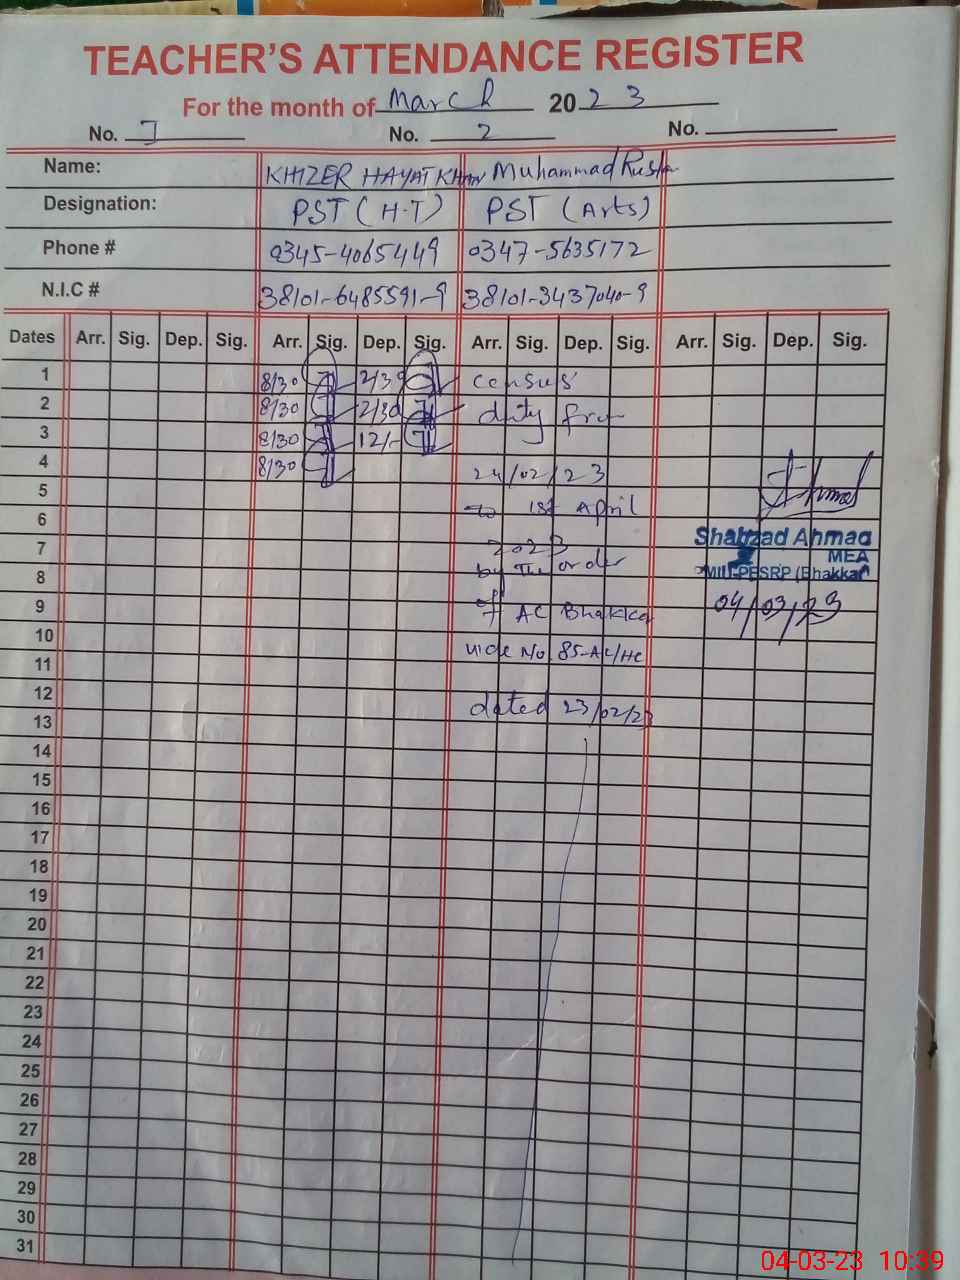 TEACHER'S ATTENDANCE REGISTER
For the month of March 2023
No. 1 No. 2 No.
Name: KHIZER HAYAT KHAN Muhammad
Designation: PST (H.T) PST (Arts)
Phone # 0345-4065449 0347-5635172
N.I.C # 38101-6485591-9 38101-3437040-9
Dates Arr. Sig. Dep. Sig. Arr. Sig. Dep. Sig. Arr. Sig. Dep. Sig. Arr. Sig. Dep. Sig.
1 8/30 2/30 census
2 8/30 2/30 duty from
3 8/30 12/-
4 8/30 24/02/23
5 to 1st April
6
Shahzad Ahmad
7 2023
MEA
by the order
8 (Bhakkar)
9 of AC Bhakkar 04/03/23
10 vide No 85-AC/HC
11
12 dated 23/02/23
13
14
15
16
17
18
19
20
21
22
23
24
25
26
27
28
29
30
31
04-03-23 10:39